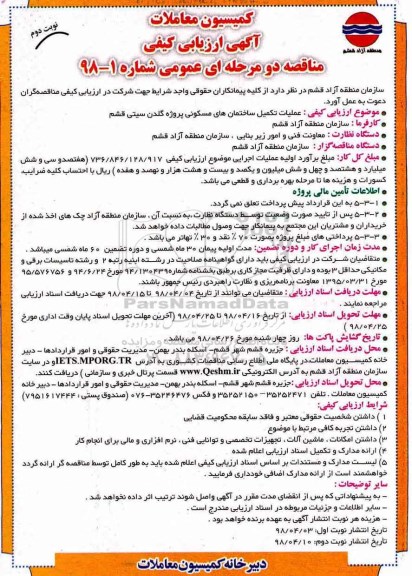 کمیسیون معاملات
آگهی ارزیابی کیفی
مناقصه دو مرحله ای عمومی شماره ۱-۹۸
نوبت دوم
منطقه آزاد قشم
سازمان منطقه آزاد قشم در نظر دارد از کلیه پیمانکاران حقوقی واجد شرایط جهت شرکت در ارزیابی کیفی مناقصه‌گران
دعوت به عمل آورد.
موضوع ارزیابی کیفی : عملیات تکمیل ساختمان های مسکونی پروژه گلدن سیتی قشم
کارفرما : سازمان منطقه آزاد قشم
دستگاه نظارت : معاونت فنی و امور زیر بنایی ، سازمان منطقه آزاد قشم
دستگاه مناقصه‌گزار : سازمان منطقه آزاد قشم
مبلغ کل کار: مبلغ برآورد اولیه عملیات اجرایی موضوع ارزیابی کیفی ۷۳۶/۸۴۶/۱۲۸/۹۱۷ (هفتصدو سی و شش
میلیارد و هشتصد و چهل و شش میلیون و یکصد و بیست و هشت هزار و نهصد و هفده ) ریال با احتساب کلیه ضرایب،
کسورات و هزینه ها تا مرحله بهره برداری و قطعی می باشد.
اطلاعات تأمین مالی پروژه
۱-۳-۵ به این قرارداد پیش پرداخت تعلق نمی گردد.
۲-۳-۵ پس از تایید صورت وضعیت توسط دستگاه نظارت ،به نسبت آن ، سازمان منطقه آزاد چک های اخذ شده از
خریداران و مشتریان این مجتمع به پیمانکار جهت وصول مطالبات داده خواهد شد.
۳-۳-۵ پرداختی های مبلغ پروژه بصورت ۷۰ ٪ نقد و ۳۰ ٪ تهاتر می باشد .
مدت زمان اجرای کار و دوره تضمین: مدت اولیه پیمان ۳۰ ماه شمسی و دوره تضمین ۶۰ ماه شمسی میباشد .
متقاضیان شرکت در ارزیابی کیفی باید دارای گواهینامه صلاحیت در رشته ابنیه رتبه ۲ و رشته تاسیسات برقی و
مکانیکی حداقل ۳ بوده و دارای ظرفیت مجاز کاری برطبق بخشنامه شماره ۹۴/۱۳۰۴۳۹ مورخ ۹۴/۶/۲۴ و ۹۵/۵۷۶۷۵۶
مورخ ۱۳۹۵/۰۳/۳۱ معاونت برنامه‌ریزی و نظارت راهبردی رئیس جمهور باشند.
مهلت دریافت اسناد ارزیابی : متقاضیان می توانند از تاریخ ۹۸/۰۴/۰۴ تا ۹۸/۰۴/۱۵ جهت دریافت اسناد ارزیابی
مراجعه نمایند .
مهلت تحویل اسناد ارزیابی: از تاریخ ۹۸/۰۴/۱۶ تا ۹۸/۰۴/۲۵ (آخرین مهلت تحویل اسناد پایان وقت اداری مورخ
۹۸/۰۴/۲۵)
تاریخ گشایش پاکت ها: روز چهار شنبه مورخ ۹۸/۰۴/۲۶ می باشد
محل دریافت اسناد ارزیابی : جزیره قشم شهر قشم- اسکله بندر بهمن- مدیریت حقوقی و امور قراردادها - دبیر
خانه کمیسیون معاملات،در پایگاه ملی اطلاع رسانی مناقصات کشوری به آدرس IETS.MPORG.TR و در سایت
سازمان منطقه آزاد قشم به آدرس الکترونیکی www.Qeshm.ir قسمت پرتال خبری و سازمانی ) دریافت کنند.
محل تحویل اسناد ارزیابی: جزیره قشم شهر قشم- اسکله بندر بهمن- مدیریت حقوقی و امور قراردادها - دبیر خانه
کمیسیون معاملات . تلفن ۳۵۲۵۲۴۷۱ - ۳۵۲۵۲۱۵۰ و فکس ۳۵۲۴۶۴۷۶-۰۷۶ (صندوق پستی : ۷۹۵۱۶۱۷۴۴۴)
شرایط ارزیابی کیفی:
۱) داشتن شخصیت حقوقی معتبر و فاقد سابقه محکومیت قضایی
۲) داشتن تجربه کافی مرتبط با موضوع
۳) داشتن امکانات ، ماشین آلات ، تجهیزات تخصصی و توانایی فنی ، نرم افزاری و مالی برای انجام کار
۴) ارائه مدارک و تکمیل اسناد ارزیابی اعلام شده
۵) لیست مدارک و مستندات بر اساس اسناد ارزیابی کیفی اعلام شده باید به طور کامل توسط مناقصه گر ارائه گردد
خواهشمند است از ارائه مدارک اضافی خودداری فرمایید .
سایر توضیحات :
- به پیشنهاداتی که پس از انقضای مدت مقرر در آگهی واصل شوند ترتیب اثر داده نخواهد شد .
- سایر اطلاعات و جزئیات مربوطه در اسناد ارزیابی مندرج است .
- هزینه هر نوبت انتشار آگهی به عهده برنده خواهد بود .
تاریخ انتشار نوبت اول: ۹۸/۰۴/۰۳
تاریخ انتشار نوبت دوم: ۹۸/۰۴/۱۰
دبیرخانه کمیسیون معاملات